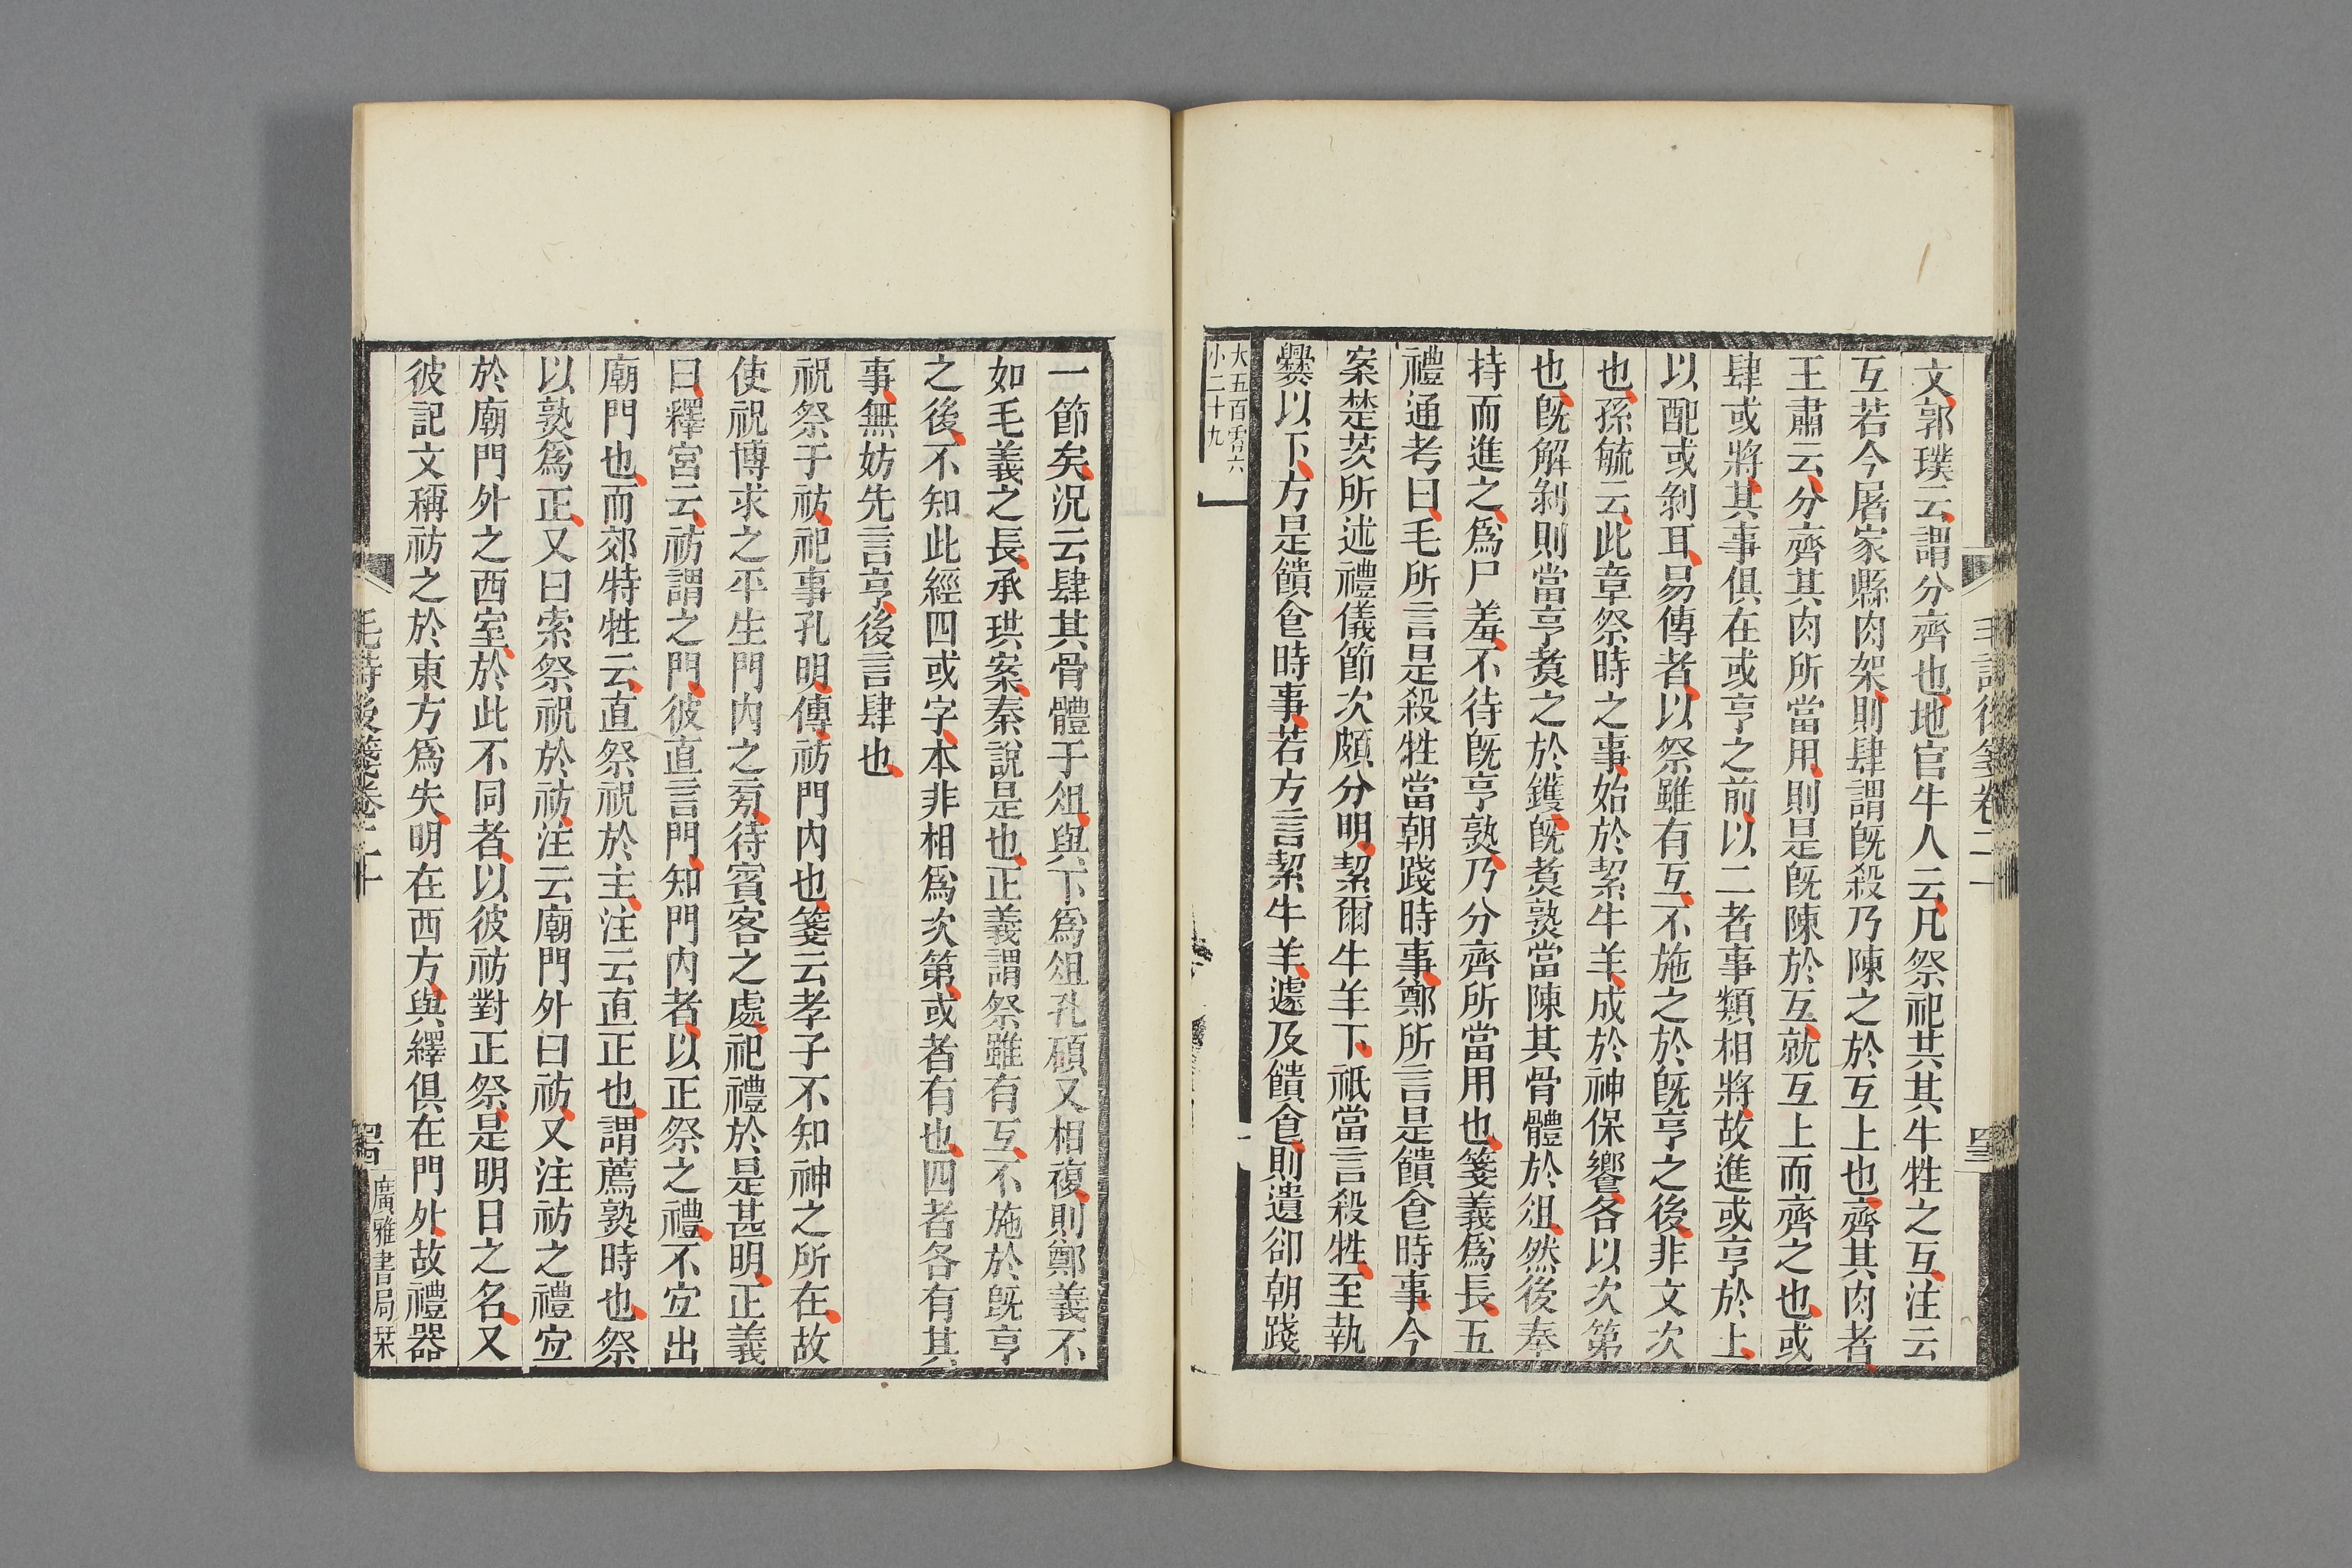 文郭璞云謂分齊也地官牛人云凡祭祀共其牛牲之互注云
互若今屠家縣肉架則肆謂旣殺乃陳之於互上也齊其肉者
王肅云分齊其肉所當用則是旣陳於互就互上而齊之也或
肆或將其事俱在或亨之前以二者事類相將故進或亨於上
以配或剝耳易傳者以祭雖有互不施之於旣亨之後非文次
也孫毓云此章祭時之事始於絜牛羊成於神保饗各以次第
也旣解剝則當亨煑之於鑊旣煑熟當陳其骨體於俎然後奉
持而進之爲尸羞不待旣亨熟乃分齊所當用也箋義爲長五
禮通考曰毛所言是殺牲當朝踐時事鄭所言是饋食時事今
案楚茨所述禮儀節次頗分明絜爾牛羊下祇當言殺牲至執
爨以下方是饋食時事若方言絜牛羊遽及饋食則遺卻朝踐
大五百
小二十九
毛詩後箋卷二十
一節矣況云肆其骨體于俎與下爲俎孔碩又相複則鄭義不
如毛義之長承珙案秦說是也正義謂祭雖有互不施於旣亨
之後不知此經四或字本非相爲次第或者有也四者各有其
事無妨先言亨後言肆也
祝祭于祊祀事孔明傳祊門內也箋云孝子不知神之所在故
使祝博求之平生門內之旁待賓客之處祀禮於是甚明正義
曰釋宮云祊謂之門彼直言門知門內者以正祭之禮不宜出
廟門也而郊特牲云直祭祝於主注云直正也謂薦熟時也祭
以熟爲正又曰索祭祝於祊注云廟門外曰祊又注祊之禮宜
於廟門外之西室於此不同者以彼祊對正祭是明日之名又
彼記文稱祊之於東方爲失明在西方與繹俱在門外故禮器
毛詩後箋卷二十
廣雅書局栞